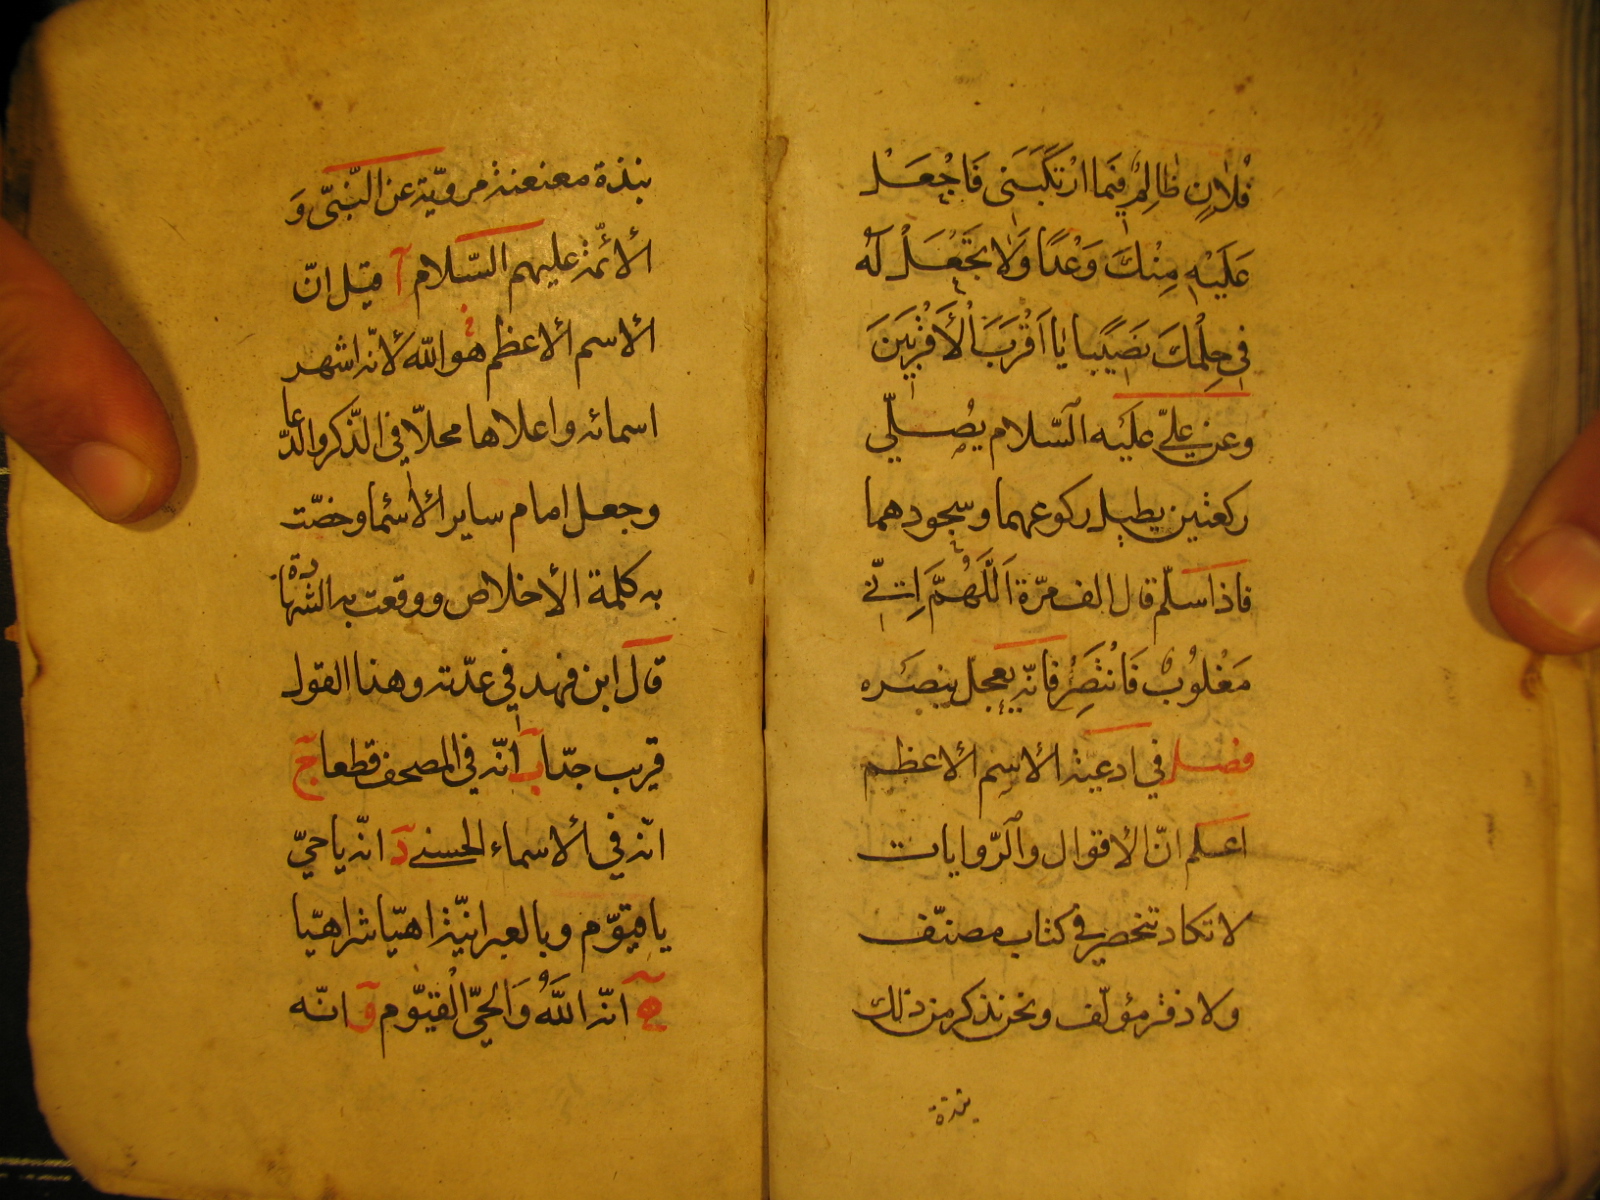 فُلانٍ ظٰالِمٌ فِيمَا ارْتَكَبَنى فَاجْعَلْ
عَلَيْهِ مِنْكَ وَعْدًا وَلٰا تَجْعَلْ لَهُ
فى حِلْمِكَ نَصَيبا يٰا اَقْرَبَ الْأَقْرَبَينَ
وعن عليّ عَلَيْه السّلام يُصلّي
ركعتين يطيل ركوعهما وسجودهما
فاذا سلّم قال الف مرّة اَللَّهُمَّ اِنّي
مَغْلُوبٌ فَانْتَصِرْ فانّه يعجل بنصره
فصل في ادعية الاسم الاعظم
اعلم انّ الاقوال والرّوايات
لا تكاد تنحصر فى كتاب مصنّف
ولا دفتر مؤلّف ونحن نذكر من ذلك
نبذة
نبذة معنعنة مرويّة عن النّبىّ و
الأئمّة عليهم السّلام آ قيل انّ
الاسم الاعظم هو اللّه لانّه اشهر
اسمائه واعلاها محلاّ في الذّكر والدّعا
وجعل امام ساير الأسما وخصّت
به كلمة الأخلاص ووقعت به الشهادة
قال ابن فهد في عدّته وهذا القول
قريب جدّا ب انّه في المصحف قطعا ج
انّه في الأسماء الحسنى د انّه يا حيّ
يا قيّوم وبالعبرانيّة اهيّا شراهيّا
ه انّه اللّهُ وَالحيّ القيّوم و انّه